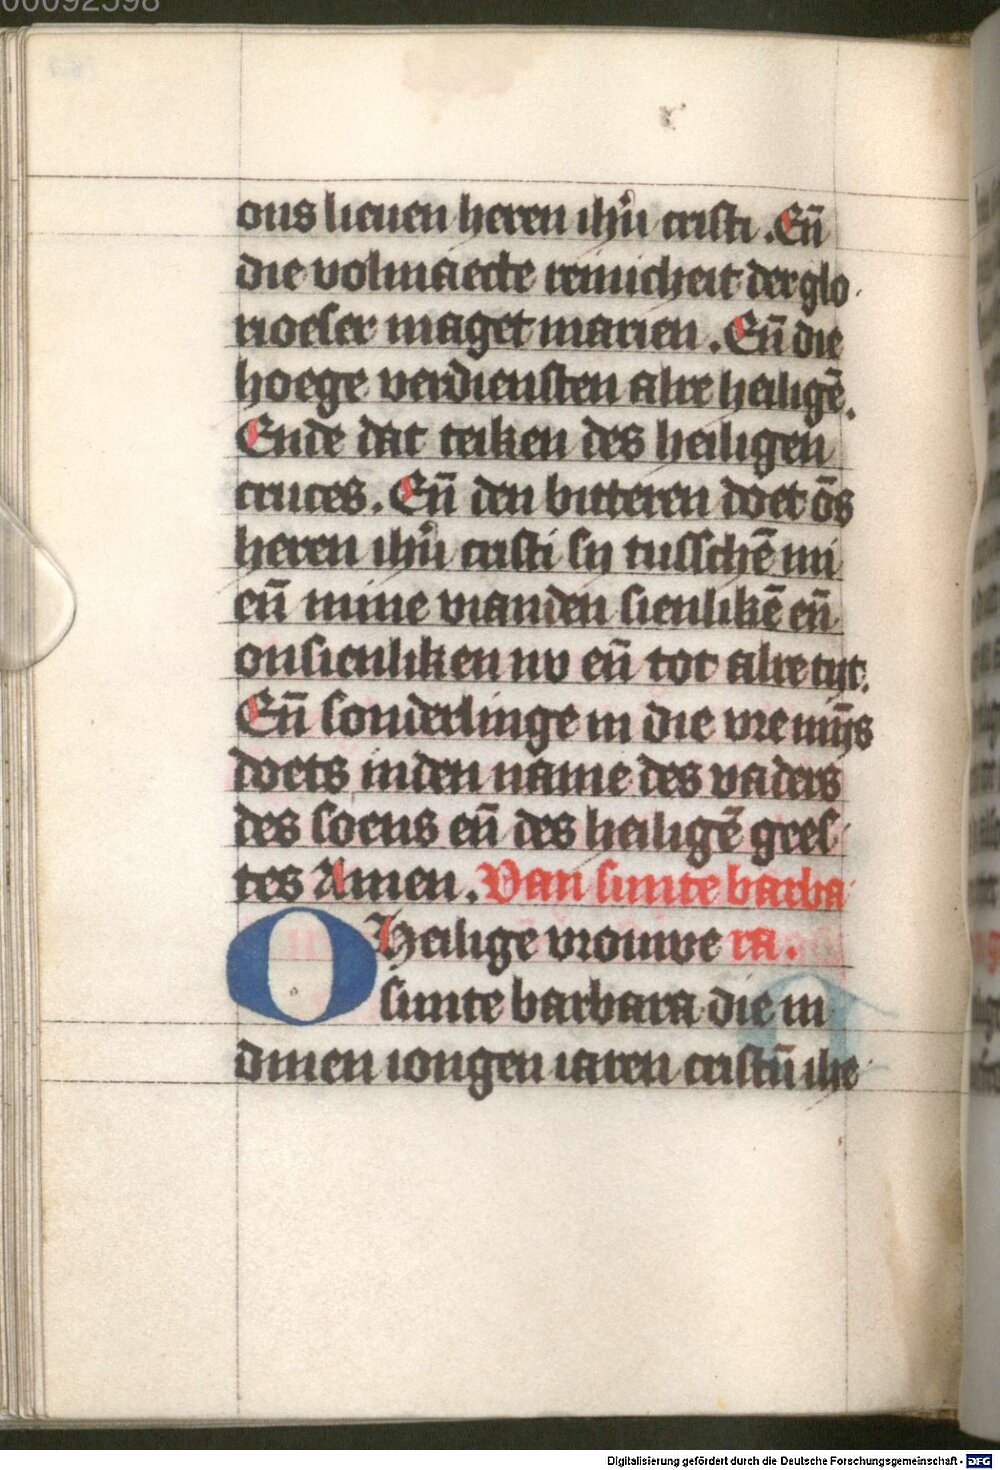 00092598
ons lieuen heren ihũ cristi. Eñ
die volmaecte reinicheit der glo
rioeser maget marien. Eñ die
hoege verdiensten alre heiligē.
Ende dat teiken des heiligen
cruces. Eñ den bitteren doet ōs
heren ihũ cristi sy tusschē mi
eñ mine vianden sienlikē eñ
onsienliken nv eñ tot alre tijt.
Eñ sonderlinge in die vre mijs
doets in den name des vaders
des soens eñ des heiligē gees
tes Amen. Van sunte barba
O Heilige vrouwe ra.
sunte barbara die in
dinen iongen iaren cristū ihe
Digitalisierung gefördert durch die Deutsche Forschungsgemeinschaft - DFG